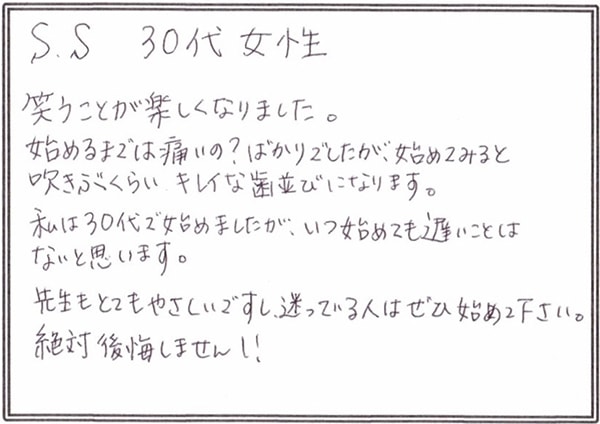 S.S 30代 女性
笑うことが楽しくなりました。
始めるまでは痛いの？ばかりでしたが、始めてみると
吹きぶくらい キレイな歯並びになります。
私は30代で始めましたが、いつ始めても遅いことは
ないと思います。
先生もとてもやさしいですし、迷っている人はぜひ始めて下さい。
絶対後悔しません！！